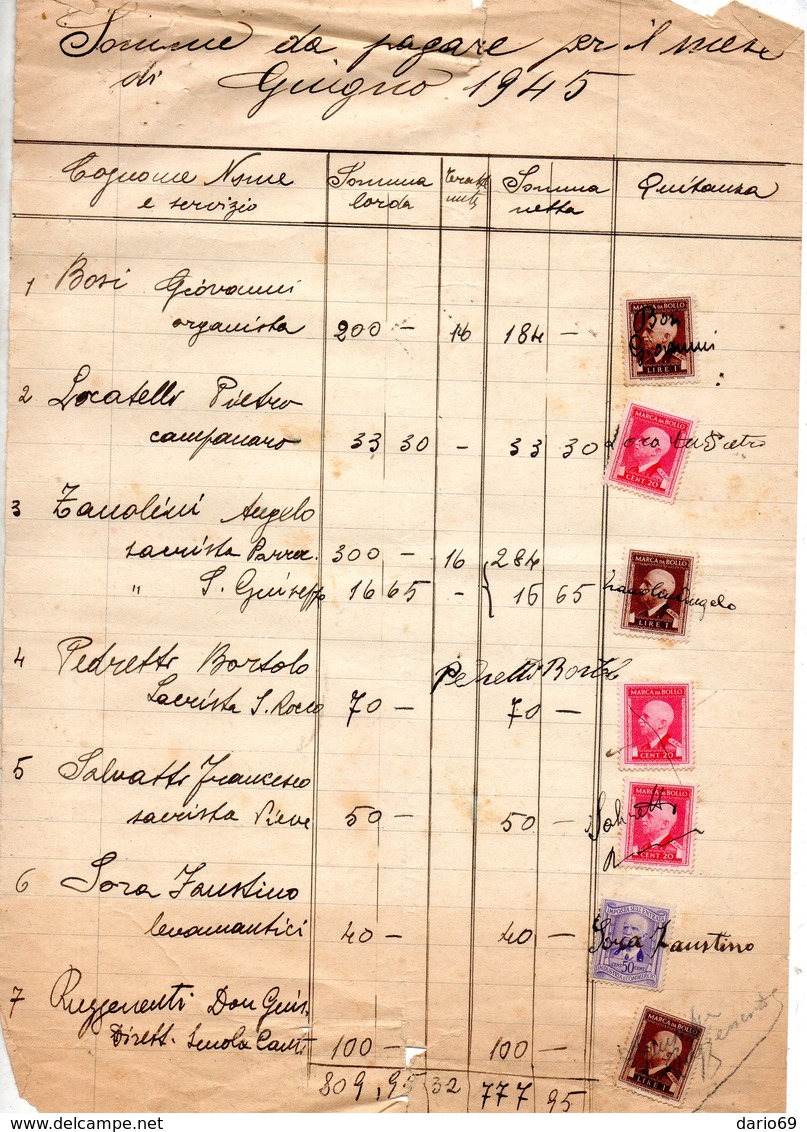 Somme da pagare per il mese
di Giugno 1945
Cognome Nome Somma Somma Quitanza
e servizio lorda netta
1 Bosi Giovanni
organista 200 — 16 184 —
MARCA DA BOLLO
Bosi
Giovanni
LIRE 1
2 Locatelli Pietro
campanaro 33 30 — 33 30
MARCA DA BOLLO
CENT. 20
3 Zanolini Angelo
sacrista Parroc. 300 — 16 284
" S. Giusepp 16 65 — 16 65
MARCA DA BOLLO
Angelo
LIRE 1
4 Pedretti Bortolo Pedretti Bortol
Sacrista S. Rocco 70 — 70 —
MARCA DA BOLLO
CENT. 20
5 Salvatti Francesco
sacrista Pieve 50 — 50 —
MARCA DA BOLLO
CENT. 20
6 Sora Faustino
levamantici 40 — 40 —
IMPOSTA SULL'ENTRATA
Sora Faustino
CENT. 50 CENT.
INDUSTRIA E COMMERCIO
7 Ruggenenti Don Gius.
Dirett. Scuola Cant. 100 — 100 —
MARCA DA BOLLO
LIRE 1
809,95 32 777 95
dario69